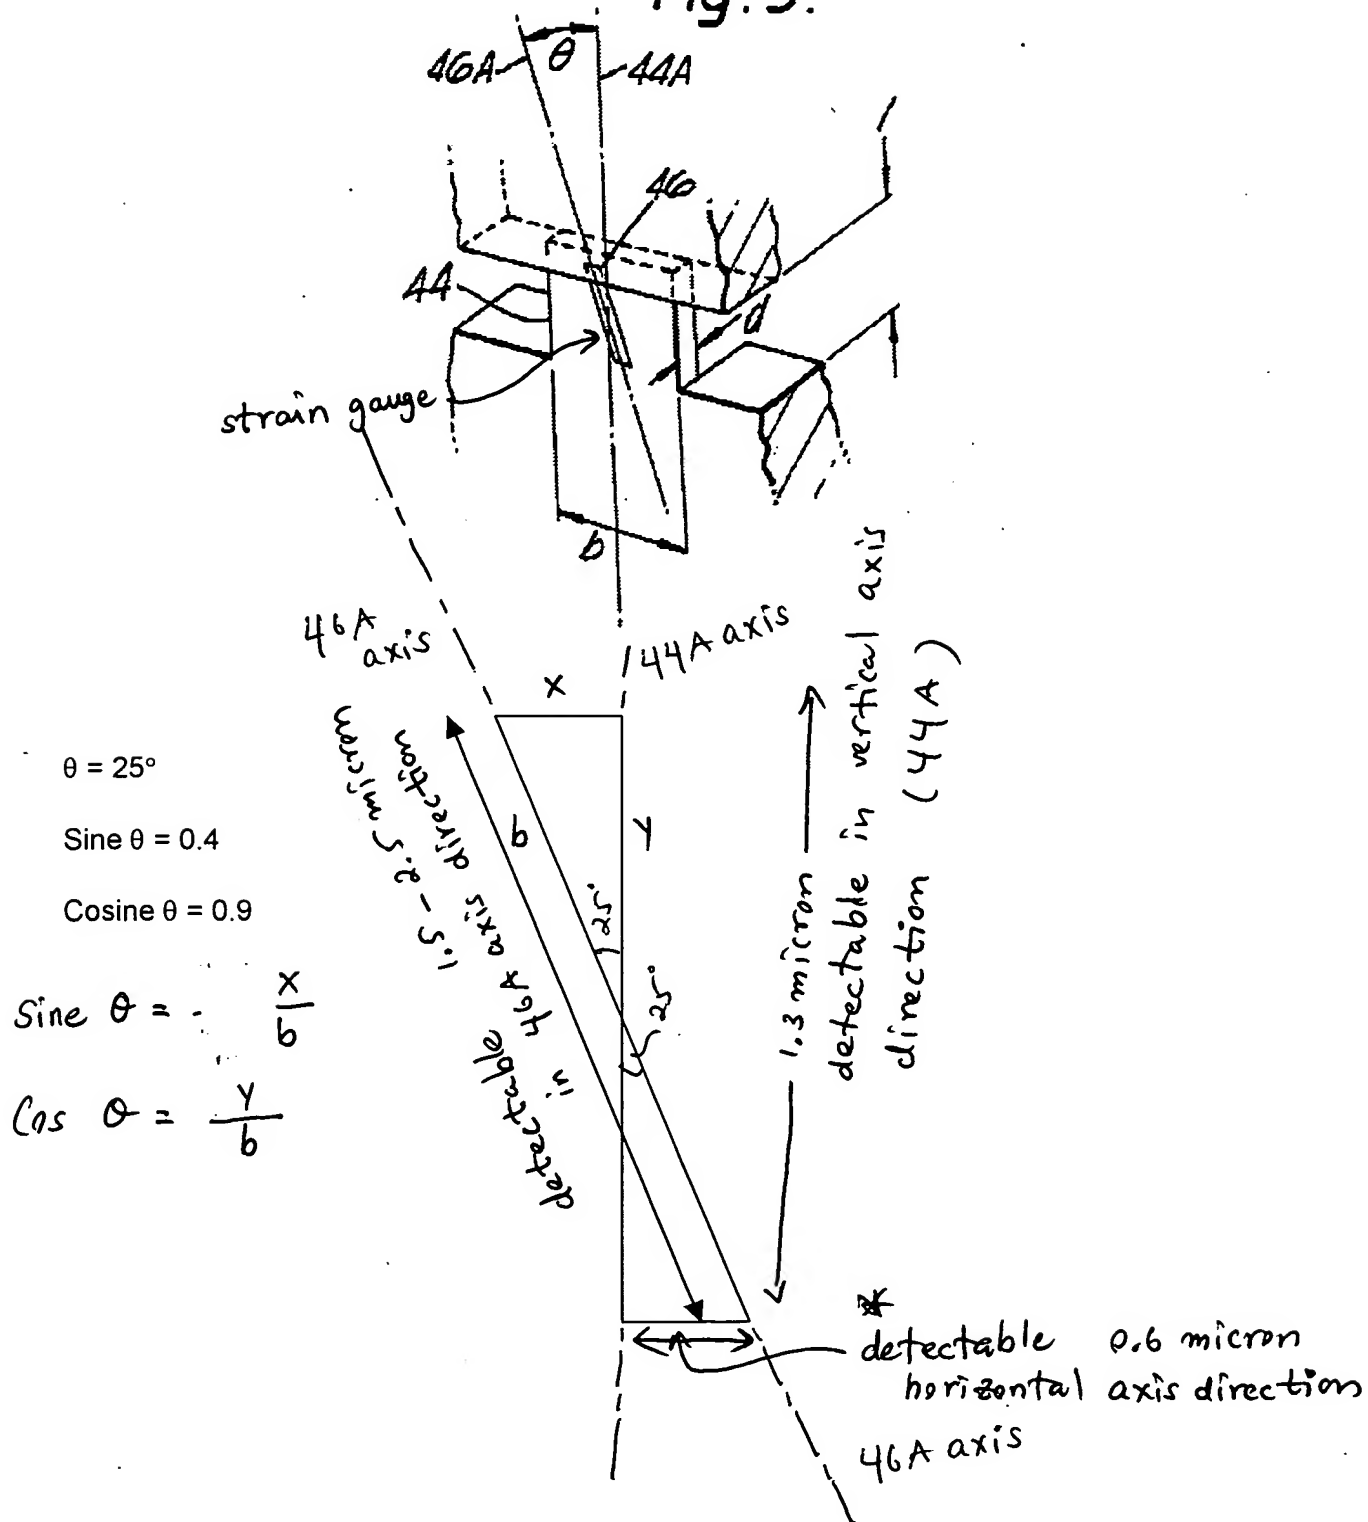 Fig. 5.
46A
θ
44A
46
44
d
strain gauge
b
46A
axis
44A axis
x
1.5 - 2.5 micron
detectable
in 46A axis direction
b
y
25°
25°
1.3 micron
detectable in vertical axis
direction (44A)
θ = 25°
Sine θ = 0.4
Cosine θ = 0.9
Sine θ = x
b
Cos θ = y
b
*
detectable 0.6 micron
horizontal axis direction
46A axis